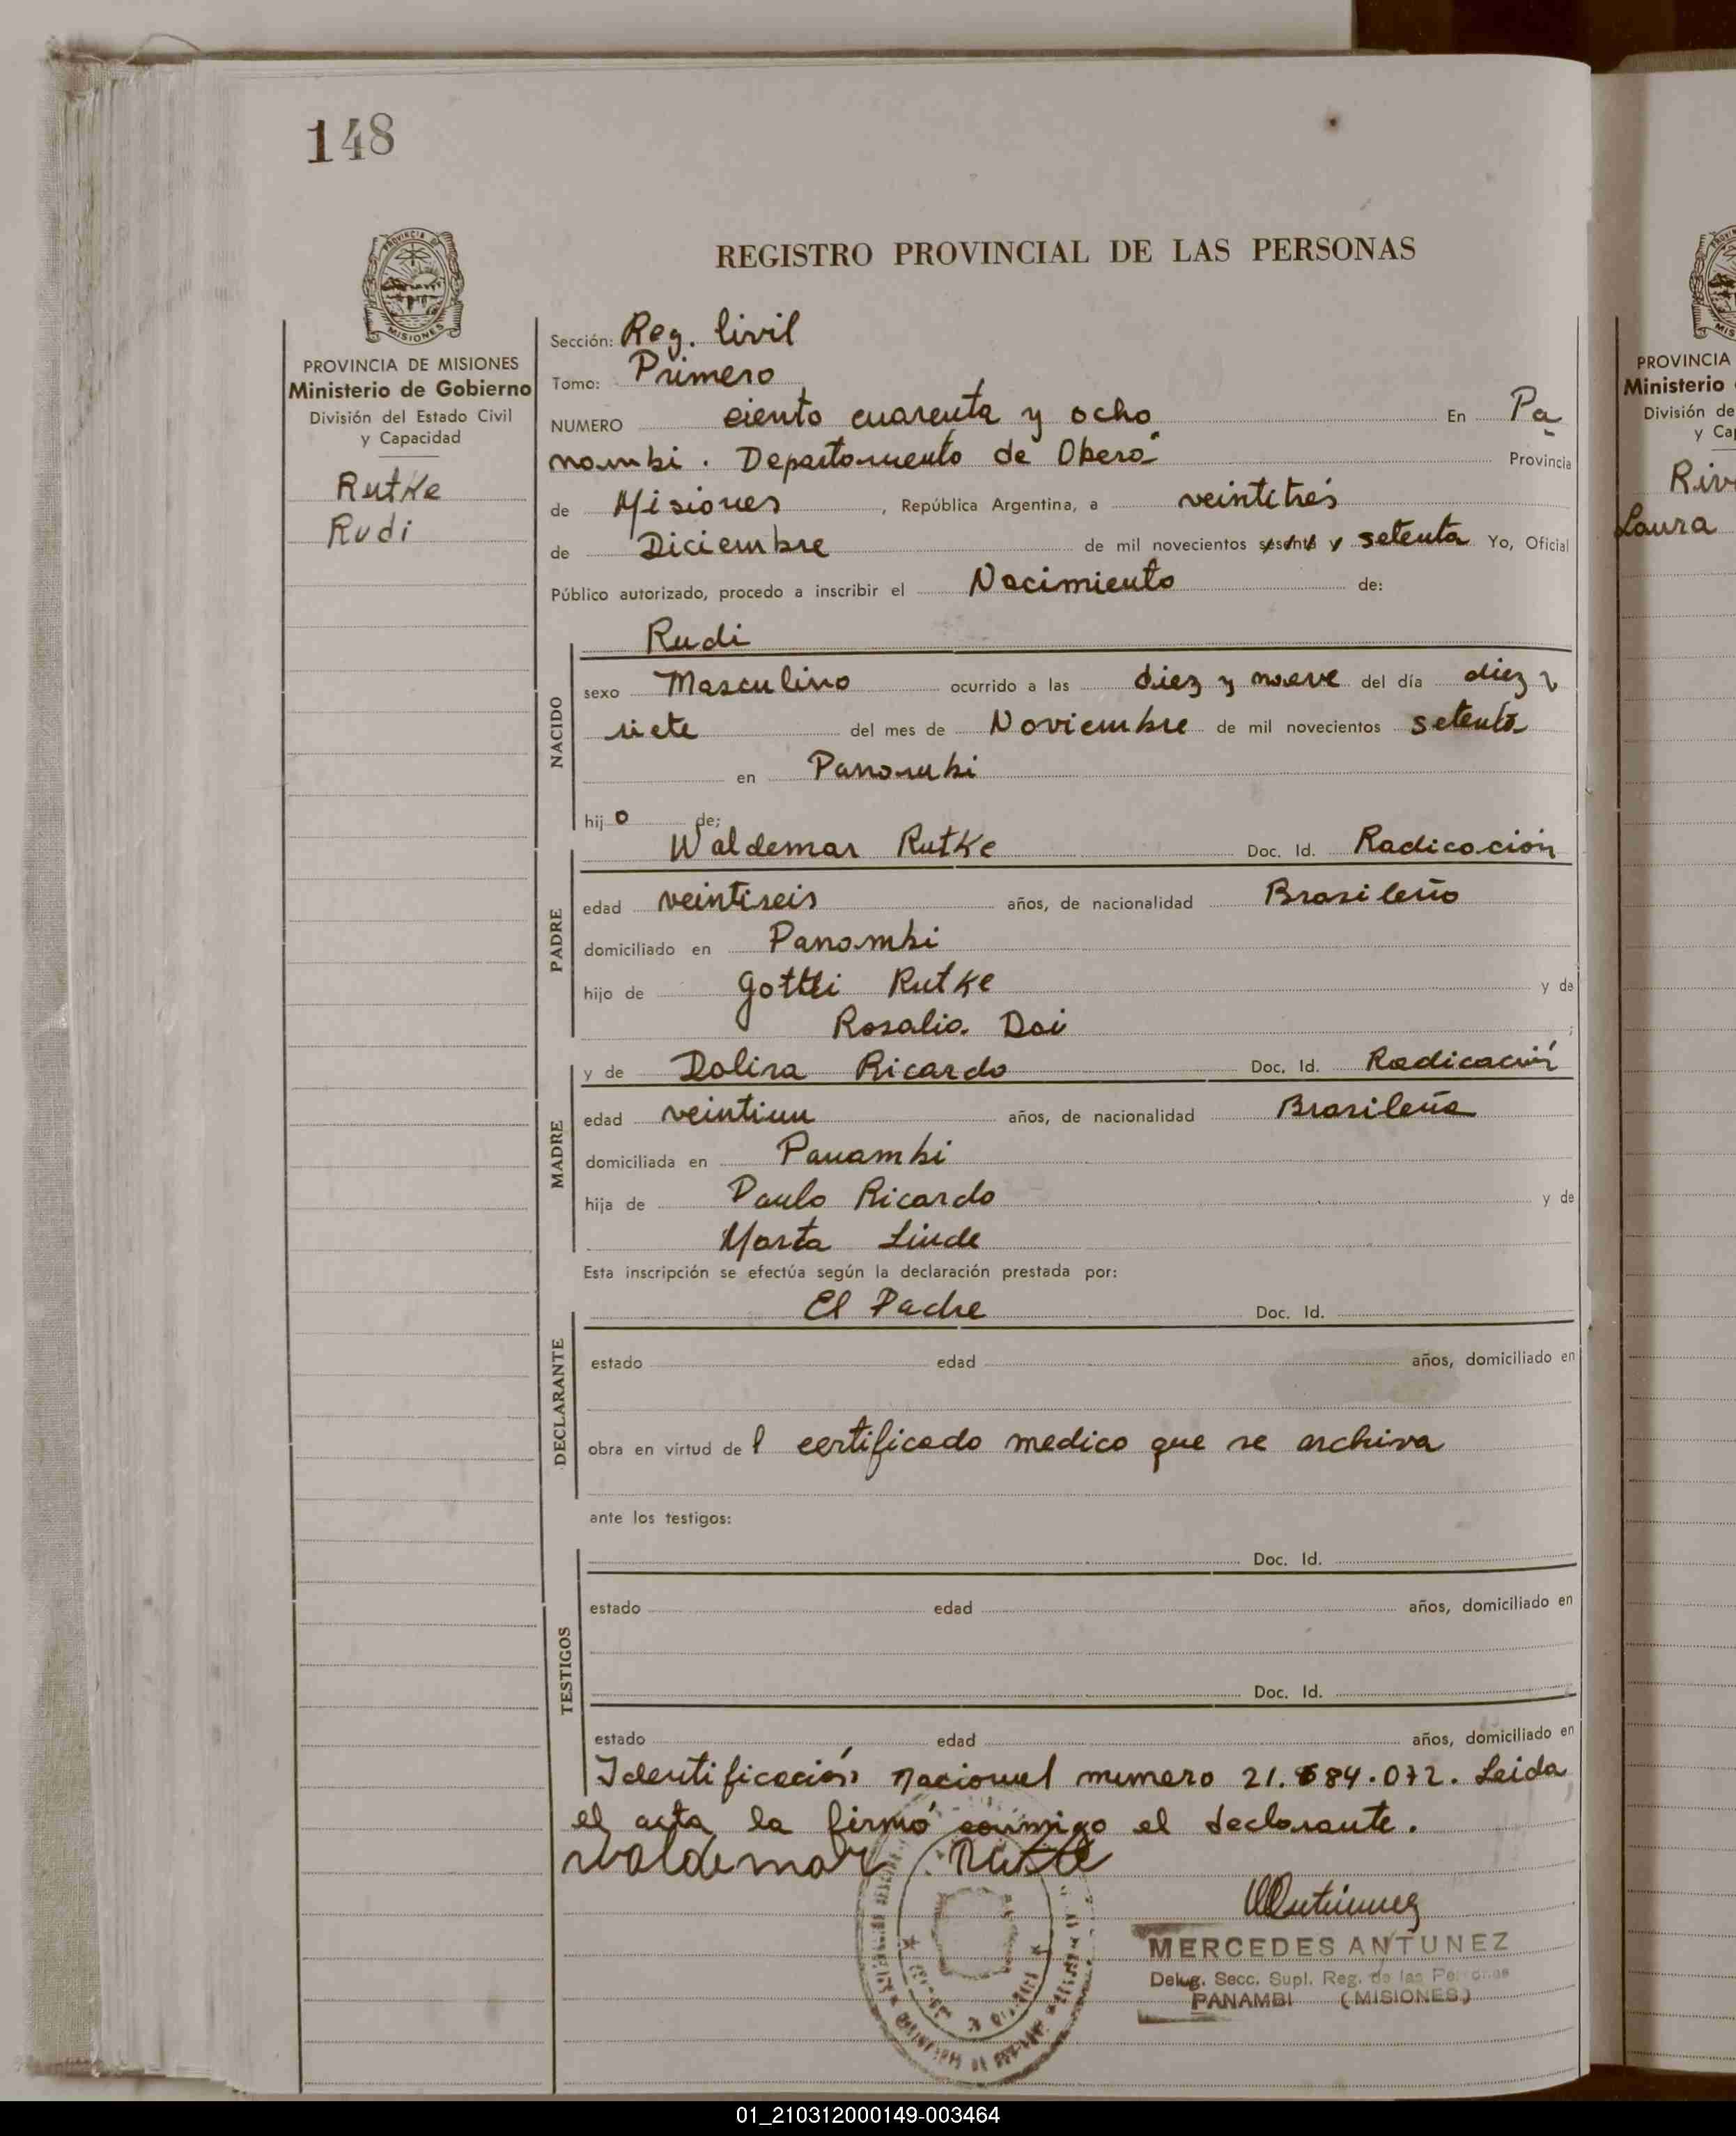 148
REGISTRO PROVINCIAL DE LAS PERSONAS
PROVINCIA DE MISIONES
MISIONES
PROVINCIA DE MISIONES
Ministerio de Gobierno
División del Estado Civil
y Capacidad
Rutke
Rudi
Sección: Reg. Civil
Tomo: Primero
NUMERO ciento cuarenta y ocho En Pa
nambi. Departamento de Oberá Provincia
de Misiones, República Argentina, a veintitrés
de Diciembre de mil novecientos sesenta y setenta Yo, Oficial
Público autorizado, procedo a inscribir el Nacimiento de:
Rudi
NACIDO
sexo Masculino ocurrido a las diez y nueve del día diez y
siete del mes de Noviembre de mil novecientos setenta
en Panambi
hijo de:
PADRE
Waldemar Rutke Doc. Id. Radicación
edad veintiseis años, de nacionalidad Brasileño
domiciliado en Panambi
hijo de Rutke y de
Rosalia Dai;
MADRE
y de Ricardo Doc. Id. Radicación
edad veintiun años, de nacionalidad Brasileña
domiciliada en Panambi
hija de Paulo Ricardo y de
Marta Linde
Esta inscripción se efectúa según la declaración prestada por:
DECLARANTE
El Padre Doc. Id.
estado edad años, domiciliado en
obra en virtud del certificado medico que se archiva
ante los testigos:
TESTIGOS
Doc. Id.
estado edad años, domiciliado en
Doc. Id.
estado edad años, domiciliado en
Identificación Nacional numero 21.684.072. Leida
el acta la firmó conmigo el declarante.
Waldemar Rutke
MERCEDES ANTUNEZ
Deleg. Secc. Supl. Reg. de las Personas
PANAMBI (MISIONES)
PROVINCIA
Ministerio
División de
y Ca
Laura
01_210312000149-003464